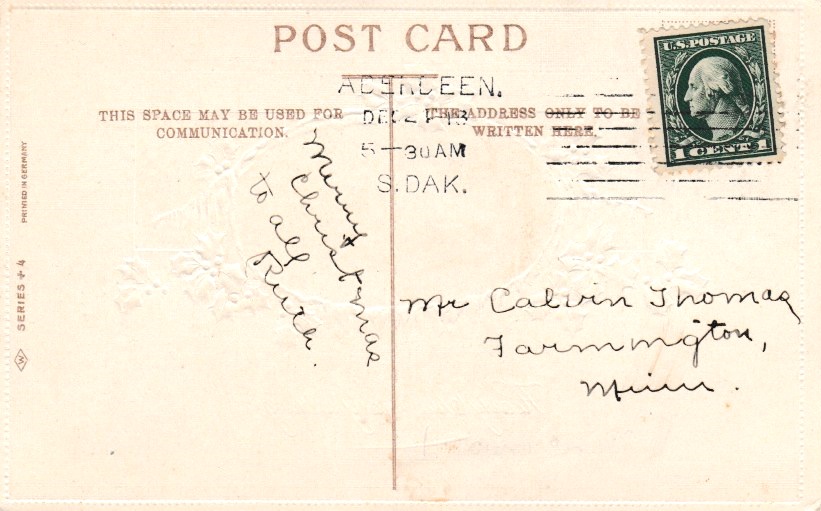 POST CARD
U.S. POSTAGE
1 CENT 1
ABERDEEN.
DEC 21 13
5-30AM
S.DAK.
THIS SPACE MAY BE USED FOR
COMMUNICATION.
THE ADDRESS ONLY TO BE
WRITTEN HERE.
Merry
Christmas
to all
Ruth.
Mr Calvin Thomas
Farmington,
Minn.
PRINTED IN GERMANY
SERIES 4
W